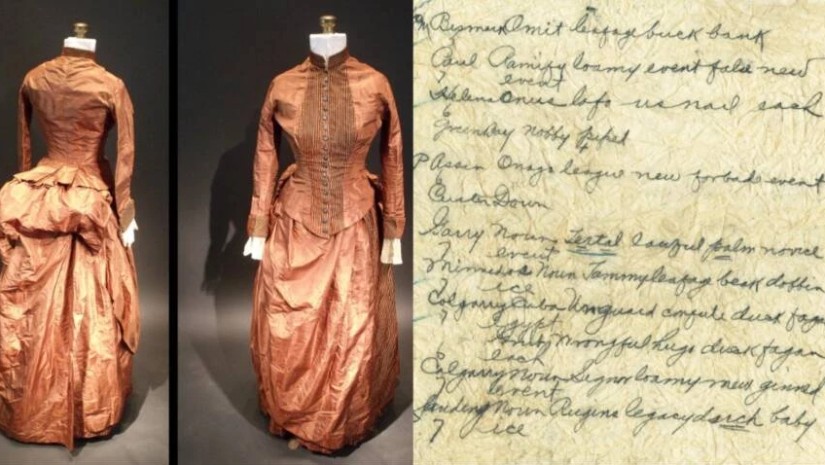 Bismark Omit leafage buck bank
Paul Ramify loamy event false new
event
Helena Onus lofo us nail each
Greenbay nobby peped
Assin Onago league new forbade event
Custer Down
Garry Noun Tertal lawful palm novice
event
Minnedos Noun Jammyleafage beak dobbin
ice
Calgarry Cuba Unguard confute duck fagan
Egypt
Wrongful hugo duck fagan
each
Calgarry Noun Signor loamy new ginned
event
Landing Noun Rugins legacy dutch baby
ice